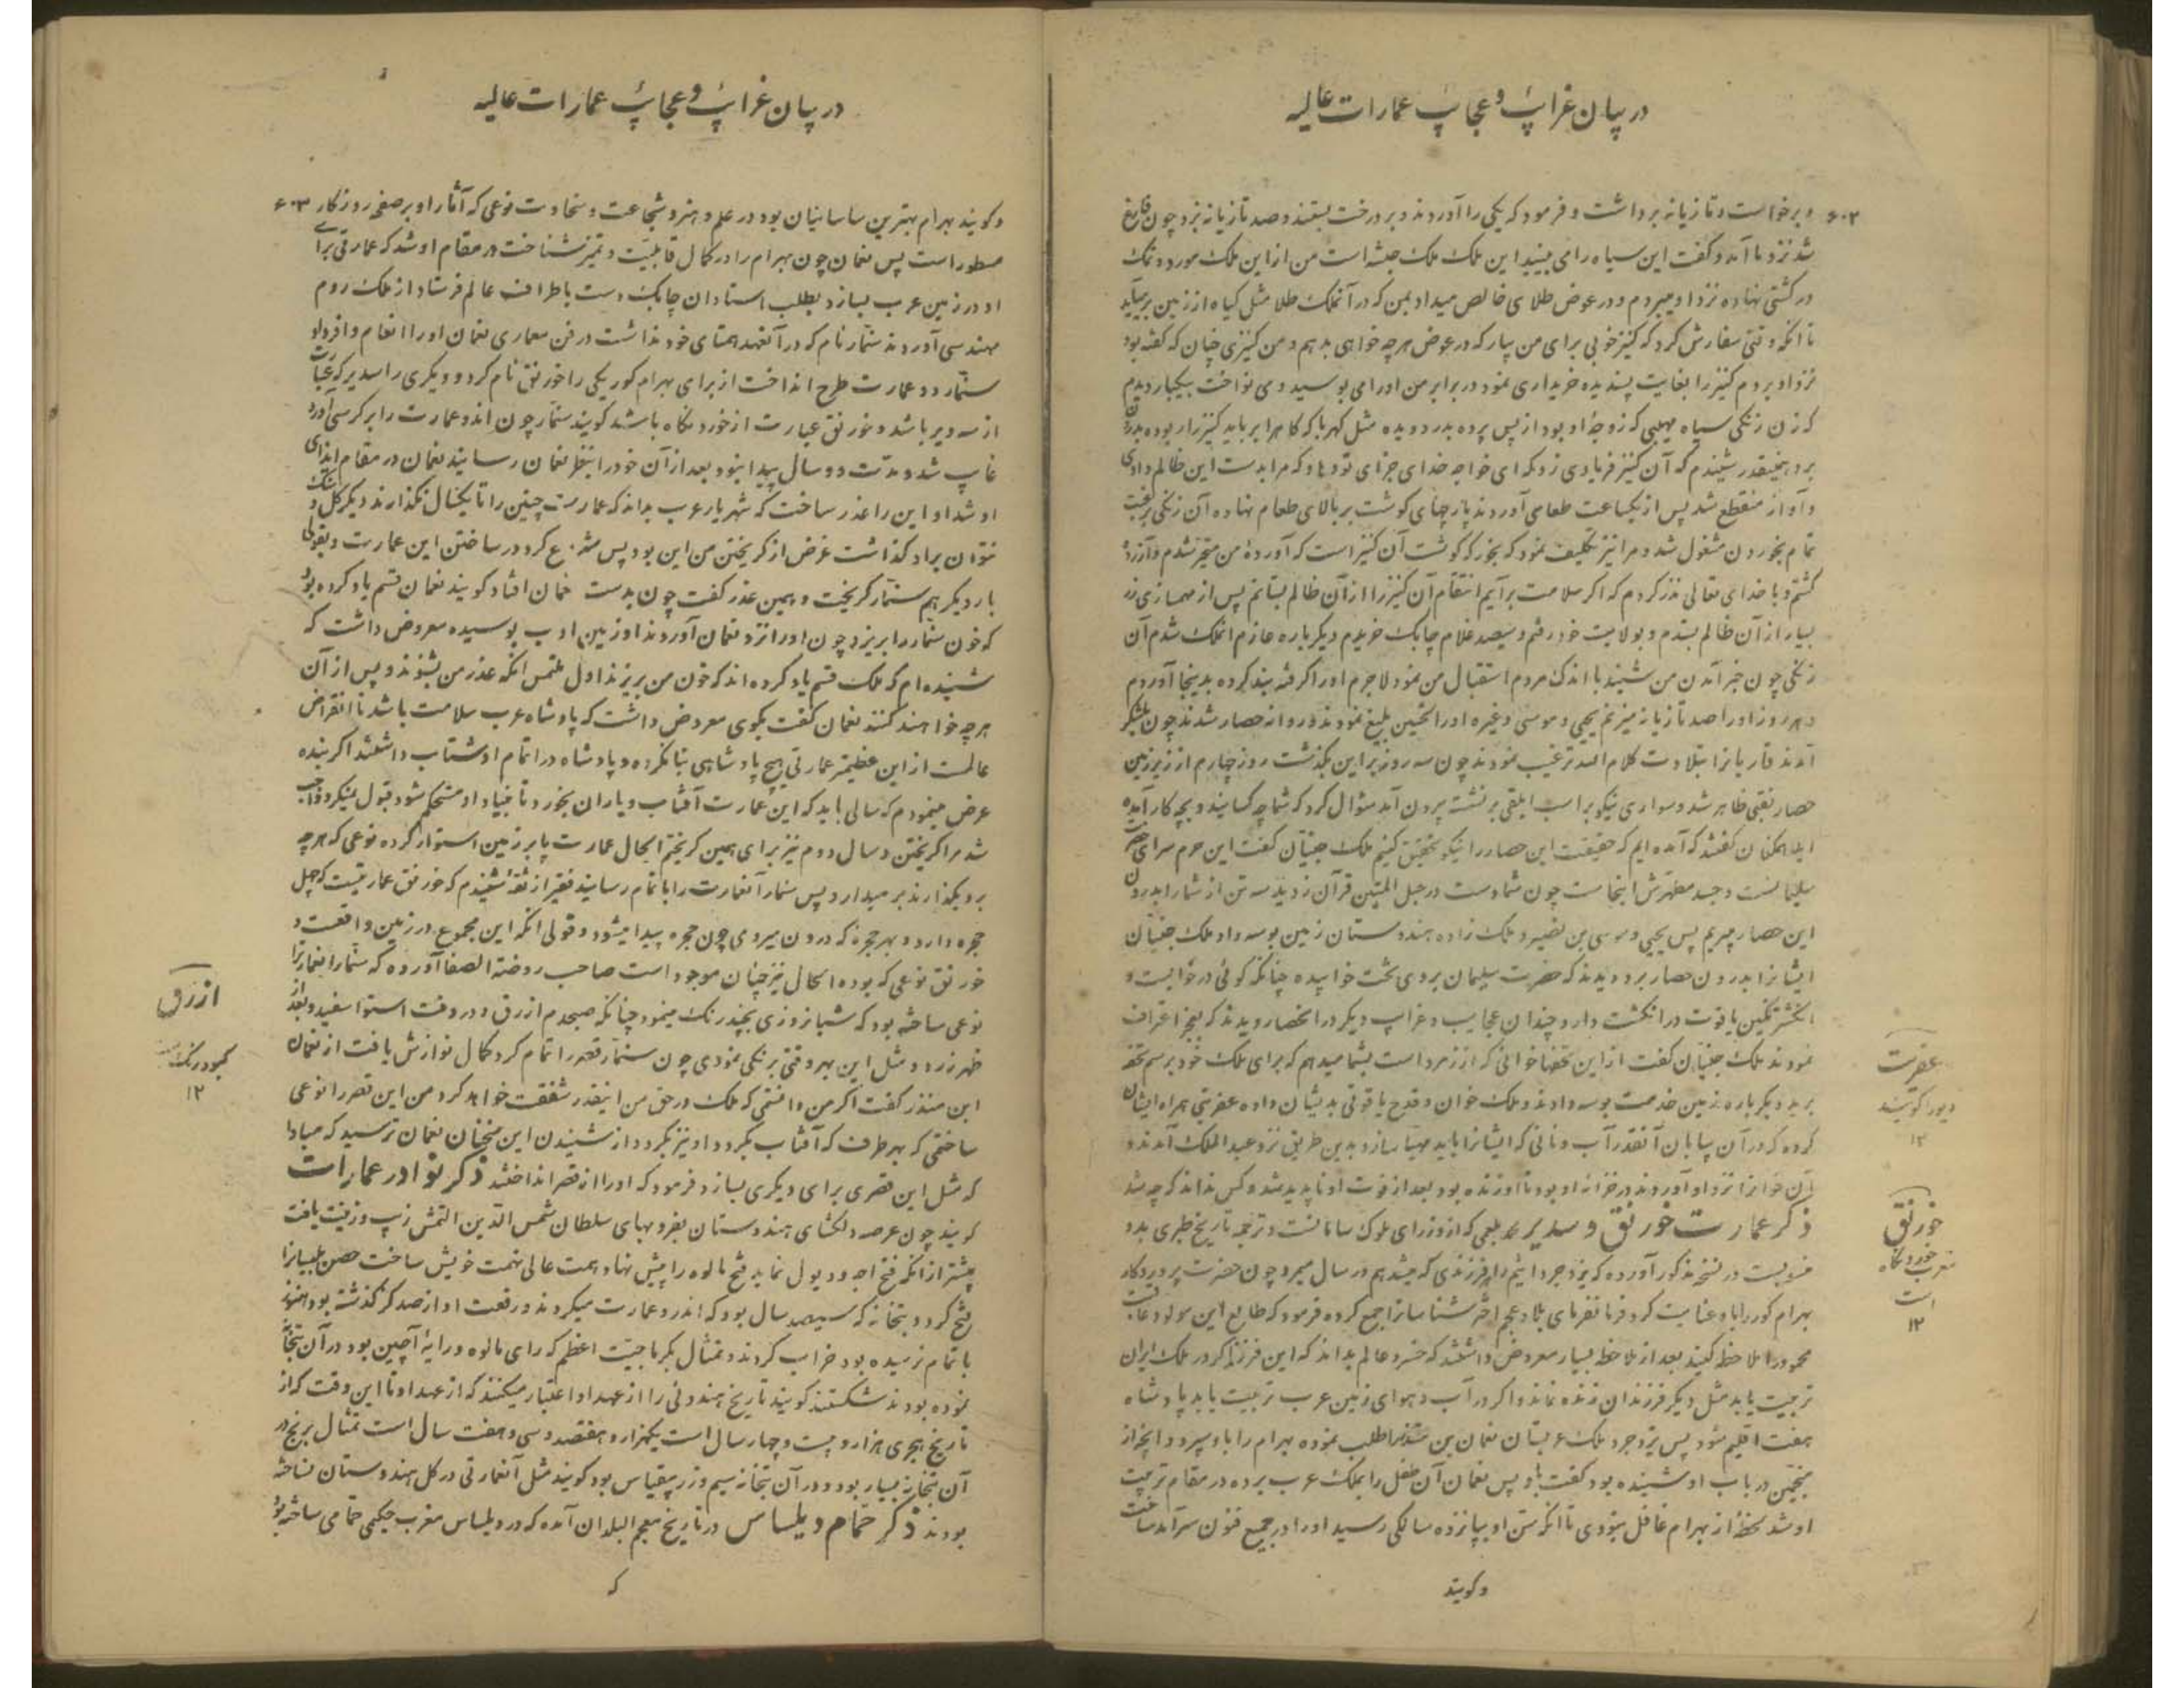 در بیان غرائب و عجائب عمارات عالیه
۶۰۲
و برخواست و تازیانه برداشت و فرمود که یکی را آوردند و بر درخت بستند و صد تازیانه بزد چون فارغ
شد نزد ما آمد و گفت این سیاه را می بینید این ملک ملک حبشه است من از این ملک مورد و نمک
در کشتی نهاده نزد او میبردم و در عوض طلای خالص میداد بمن که در آنملک طلا مثل گیاه از زمین برمیآید
تا آنکه وقتی سفارش کرد که کنیز خوبی برای من بیار که در عوض هرچه خواهی بدهم و من کنیزی چنان که گفته بود
نزد او بردم کنیز را بغایت پسندیده خریداری نمود در برابر من او را می بوسید و می نواخت بیکبار دیدم
که زن زنگی سیاه مهیبی که زوجهٔ او بود از پس پرده بدر دویده مثل کهربا که کاه را برباید کنیز را ربوده بدرون
برد همینقدر شنیدم که آن کنیز فریادی زد که ای خواجه خدای جزای تو دهاد که مرا بدست این ظالم دادی
و آواز منقطع شد پس از یکساعت طعامی آوردند پارچهای گوشت بر بالای طعام نهاده آن زنگی برغبت
تمام بخوردن مشغول شد و مرا نیز تکلیف نمود که بخور که گوشت آن کنیز است که آوردهٔ من متحیر شدم و آزرده
گشتم و با خدای تعالی نذر کردم که اگر سلامت برآیم انتقام آن کنیز را از آن ظالم بستانم پس از مهمازی زر
بسیار از آن ظالم بستدم و بولایت خود رفتم و سیصد غلام چابک خریدم دیگر باره عازم آنملک شدم آن
زنگی چون خبر آمدن من شنید با اندک مردم استقبال من نمود لاجرم او را گرفته بند کرده بدینجا آوردم
و هر روز او را صد تازیانه میزنم یحیی و موسی و غیره او را تحسین بلیغ نمودند و روانه حصار شدند چون بلشکر
آمدند قاریانرا بتلاوت کلام الله ترغیب نمودند چون سه روز بر این بگذشت روز چهارم از زیر زمین
حصار نقبی ظاهر شد و سواری نیکو بر اسب ابلقی برنشسته برون آمد سؤال کرد که شما چه کسانید و بچه کار آمده
اید ایشان گفتند که آمده ایم که حقیقت این حصار را نیکو تحقیق کنیم ملک جنیان گفت این حرم سرای حضرت
سلیمانست و جسد مطهرش اینجاست چون شما دست در حبل المتین قرآن زدید سه تن از شما را بدرون
این حصار میبریم پس یحیی و موسی بن نضیر و ملک زاده هندوستان زمین بوسه داد ملک جنیان
ایشانرا بدرون حصار برد و دیدند که حضرت سلیمان بر وی تخت خوابیده چنانکه گوئی در خوابست و
انگشتر نگین یاقوت در انگشت دارد چندان عجایب و غرایب دیگر در آنحصار دیدند که بعجز اعتراف
نمودند ملک جنیان گفت از این تحفها خوانی که از زمرد است بشما میدهم که برای ملک خود برسم تحفه
برید دیگر باره زمین خدمت بوسه دادند و ملک خوان و قدح یاقوتی بدیشان داده عفریتی همراه ایشان
کرده که در آن بیابان آنقدر آب و نانی که ایشانرا باید مهیا سازد بدین طریق نزد عبدالملک آمدند و
آن خوانرا نزد او آوردند در خزانه او بود تا او زنده بود بعد از فوت او ناپدید شد و کس نداند که چه شد
ذکر عمارت خورنق و سدیر محمد بلعمی که از وزرای ملوک سامانست و ترجمه تاریخ طبری بدو
منسوبست در نسخه مذکور آورده که یزدجرد اثیم را هر فرزندی که میشد هم در سال میمرد چون حضرت پروردگار
بهرام گور را باو عنایت کرد فرمانفرمای بلاد عجم اخترشناسانرا جمع کرده فرمود که طالع این مولود عاقبت
محمود را ملاحظه کنید بعد از ملاحظه بسیار معروض داشتند که خسرو عالم بداند که این فرزند اگر در ملک ایران
تربیت یابد مثل دیگر فرزندان زنده نماند و اگر در آب و هوای زمین عرب تربیت یابد پادشاه
هفت اقلیم شود پس یزدجرد ملک عربستان نعمان بن منذر را طلب نموده بهرام را باو سپرد و آنچه از
منجمین در باب او شنیده بود گفت باو پس نعمان آن طفل را بملک عرب برده در مقام تربیت
او شد لحظهٔ از بهرام غافل نبودی تا آنکه سن او بپانزده سالگی رسید او را در جمیع فنون سرآمد ساخت
و گویند
عفریت
دیو را گویند
۱۲
خورنق
معرب خوردنگاه
است
۱۲
در بیان غرائب و عجائب عمارات عالیه
۶۰۳
و گویند بهرام بهترین ساسانیان بود در علم و هنر و شجاعت و سخاوت نوعی که آثار او بر صفحه روزگار
مسطور است پس نعمان چون بهرام را در کمال قابلیت و تمیز شناخت در مقام او شد که عمارتی برای
او در زمین عرب بسازد بطلب استادان چابک دست باطراف عالم فرستاد از ملک روم
مهندسی آوردند سنمار نام که در آنعهد همتای خود نداشت در فن معماری نعمان او را انعام وافر داد
سنمار دو عمارت طرح انداخت از برای بهرام گور یکی را خورنق نام کرد و دیگری را سدیر که عبارت
از سه دیر باشد و خورنق عبارت از خوردنگاه باشد گویند سنمار چون اندو عمارت را بر کرسی آورد
غایب شد و مدت دو سال پیدا نبود بعد از آن خود را بنظر نعمان رسانید نعمان در مقام ایذای
او شد او این را عذر ساخت که شهریار عرب بداند که عمارت چنین را تا یکسال نگذارند دیگر گل و سنگ
نتوان براو گذاشت غرض از گریختن من این بود پس شروع کرد در ساختن این عمارت و بقولی
بار دیگر هم سنمار گریخت و همین عذر گفت چون بدست نعمان افتاد گویند نعمان قسم یاد کرده بود
که خون سنمار را بریزد چون او را نزد نعمان آوردند او زمین ادب بوسیده معروض داشت که
شنیده ام که ملک قسم یاد کرده اند که خون من بریزند اول ملتمس آنکه عذر من بشنوند و پس از آن
هرچه خواهند کنند نعمان گفت بگوی معروض داشت که پادشاه عرب سلامت باشد تا انقراض
عالمست از این عظیمتر عمارتی هیچ پادشاهی بنا نکرده و پادشاه در اتمام او شتاب داشتند اگر بنده
عرض مینمودم که سالی باید که این عمارت آفتاب و باران بخورد تا بنیاد او مستحکم شود قبول نمیکرد واجب
شد مرا گریختن و سال دوم نیز برای همین گریختم الحال عمارت پا بر زمین استوار کرده نوعی که هرچه
برو بگذارند بر میدارد پس سنمار آنعمارت را باتمام رسانید فقیر از ثقهٔ شنیدم که خورنق عمارتیست که چهل
حجره دارد و بهر حجره که درون میروی چون حجره پیدا میشود و قولی آنکه این مجموع در زمین واقعست و
خورنق نوعی که بوده الحال نیز چنان موجود است صاحب روضة الصفا آورده که سنمار آنعمارترا
نوعی ساخته بود که شبانروزی بچند رنگ مینمود چنانکه صبحدم ازرق و در وقت استوا سفید و بعد از
ظهر زرد و مثل این بهر وقتی برنگی نمودی چون سنمار قصر را تمام کرد کمال نوازش یافت از نعمان
ابن منذر گفت اگر من دانستمی که ملک در حق من اینقدر شفقت خواهد کرد من این قصر را نوعی
ساختمی که بهر طرف که آفتاب بگردد او نیز بگردد از شنیدن این سخنان نعمان ترسید که مبادا
که مثل این قصری برای دیگری بسازد فرمود که او را از قصر انداختند ذکر نوادر عمارات
گویند چون عرصه دلگشای هندوستان بفر و بهای سلطان شمس الدین التمش زیب و زینت یافت
پیشتر از آنکه فتح اجه و ردیول نماید فتح مالوه را پیش نهاد همت عالی نهمت خویش ساخت حصن بلیسانرا
فتح کرد و بتخانه که سیصد سال بود که اندر و عمارت میکردند و رفعت او از صد گز گذشته بود هنوز
باتمام نرسیده بود خراب کردند و تمثال بکرماجیت اعظم که رای مالوه و رایهٔ آچین بود در آن بتخانه
نموده بودند شکستند گویند تاریخ هندوئی را از عهد او اعتبار میکنند که از عهد او تا این وقت که از
تاریخ هجری هزار و بیست و چهار سال است یکهزار و هفتصد و سی و هفت سال است تمثال برنج در
آن بتخانه بسیار بود و در آن بتخانه سیم و زر بیقیاس بود گویند مثل آنعمارتی در کل هندوستان نساخته
بودند ذکر حمام دیلماس در تاریخ معجم البلدان آمده که در دیلماس مغرب حکیمی حمامی ساخته بود
که
ازرق
کبود رنگ
۱۲